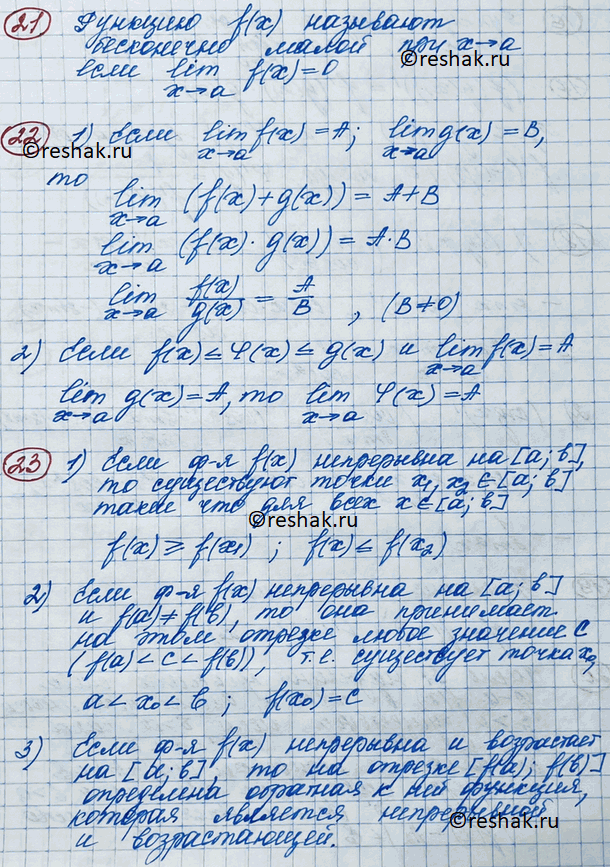 21 Функцию f(x) называют
бесконечно малой при x→a
если lim f(x)=0
x→a
22 1) Если lim f(x) = A; lim g(x) = B,
x→a x→a
©reshak.ru
то
lim (f(x)+g(x)) = A+B
x→a
lim (f(x)·g(x)) = A·B
x→a
lim f(x)/g(x) = A/B, (B≠0)
x→a
©reshak.ru
2) Если f(x) ≤ φ(x) ≤ g(x) и lim f(x) = A
x→a
lim g(x) = A, то lim φ(x) = A
x→a x→a
23 1) Если ф-я f(x) непрерывна на [a; b],
то существуют точки x₁, x₂ ∈ [a; b]
такие что для всех x∈[a; b]
©reshak.ru
f(x) ≥ f(x₁) ; f(x) ≤ f(x₂)
2) Если ф-я f(x) непрерывна на [a; b]
и f(a) ≠ f(b), то она принимает
на этом отрезке любое значение C
(f(a) < c < f(b)), т.е. существует точка x₀,
©reshak.ru
a < x₀ < b ; f(x₀) = C
3) Если ф-я f(x) непрерывна и возрастает
на [a; b], то на отрезке [f(a); f(b)]
определена обратная к ней функция,
которая является непрерывной
и возрастающей.
©reshak.ru